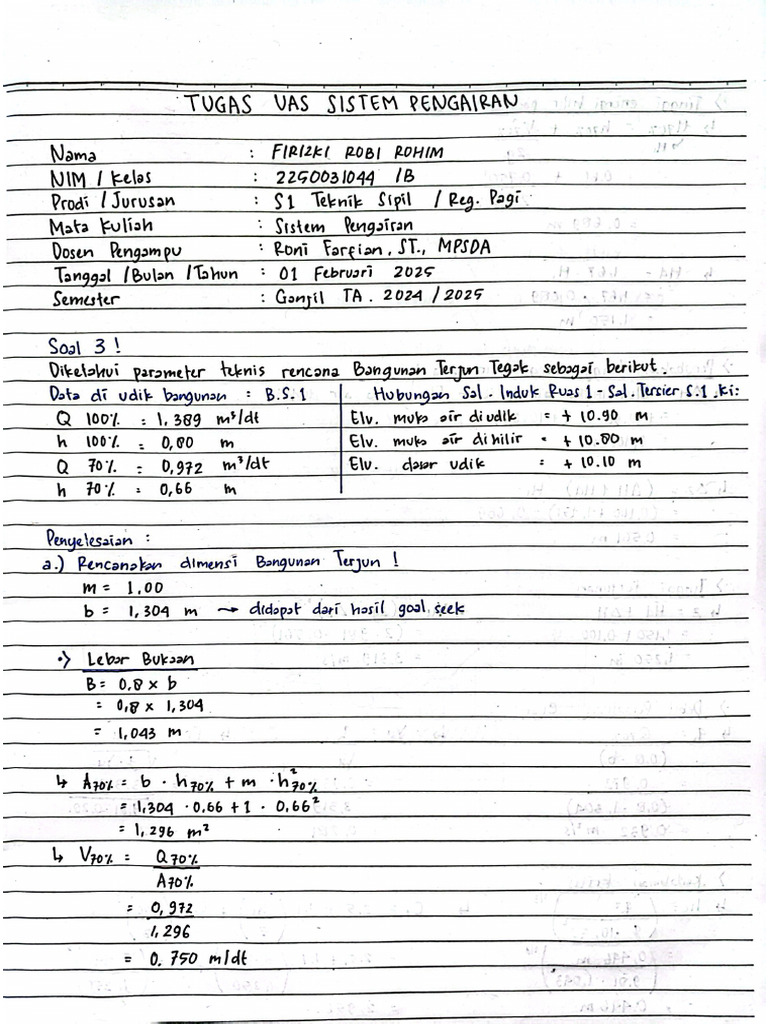 TUGAS UAS SISTEM PENGAIRAN
Nama : FIRIZKI ROBI ROHIM
NIM / Kelas : 2250031044 / B
Prodi / Jurusan : S1 Teknik Sipil / Reg. Pagi
Mata Kuliah : Sistem Pengairan
Dosen Pengampu : Roni Farfian, ST., MPSDA
Tanggal / Bulan / Tahun : 01 Februari 2025
Semester : Ganjil TA. 2024 / 2025
Soal 3 !
Diketahui parameter teknis rencana Bangunan Terjun Tegak sebagai berikut.
Data di udik bangunan : B.S.1 Hubungan Sal. Induk Ruas 1 - Sal. Tersier S.1. Ki:
Q 100% = 1,389 m³/dt Elv. muka air di udik = + 10.90 m
h 100% = 0,80 m Elv. muka air di hilir = + 10.80 m
Q 70% = 0,972 m³/dt Elv. dasar udik = + 10.10 m
h 70% = 0,66 m
Penyelesaian :
a.) Rencanakan dimensi Bangunan Terjun !
m = 1,00
b = 1,304 m → didapat dari hasil goal seek
•> Lebar Bukaan
B = 0,8 x b
= 0,8 x 1,304
= 1,043 m
↳ A70% = b · h70% + m · h²70%
= 1,304 · 0.66 + 1 · 0,66²
= 1,296 m²
↳ V70% = Q70%
A70%
= 0,972
1,296
= 0.750 m/dt